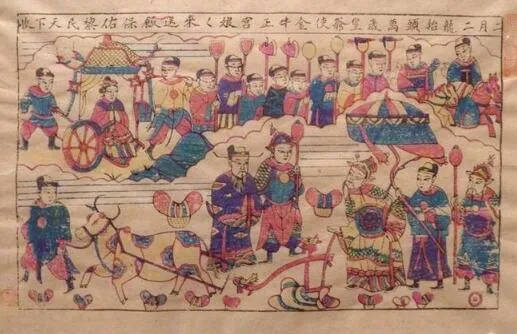 二月二龍抬頭萬歲皇爺使金牛正宮娘々來送飯保佑黎民天下收